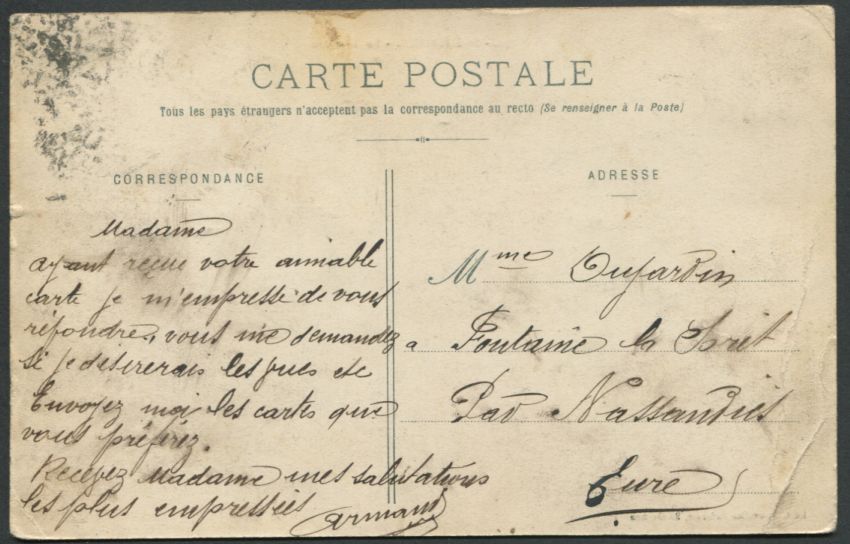 CARTE POSTALE
Tous les pays étrangers n'acceptent pas la correspondance au recto (Se renseigner à la Poste)
CORRESPONDANCE
Madame
ayant reçue votre aimable
carte je m'empresse de vous
répondre, vous me demandez
si je désirerais les vues etc
Envoyez moi les cartes que
vous préférez.
Recevez Madame mes salutations
les plus empressées
Armand
ADRESSE
Mme Dujardin
a Fontaine la Soret
Par Nassandres
Eure